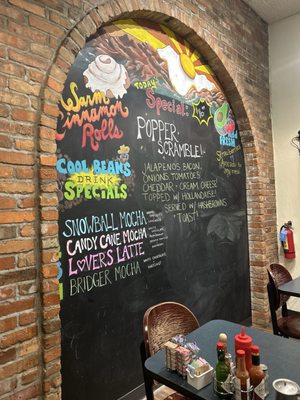 Warm
Cinnamon
Rolls
TODAY'S
Special:
POPPER
SCRAMBLE!
JALAPENOS, BACON,
ONIONS TOMATOES,
CHEDDAR + CREAM CHEESE
TOPPED W/ HOLLANDAISE!
SERVED W/ HASHBROWNS
TOAST
COOL BEANS
DRINK
SPECIALS
SNOWBALL MOCHA
CANDY CANE MOCHA
LOVERS LATTE
BRIDGER MOCHA